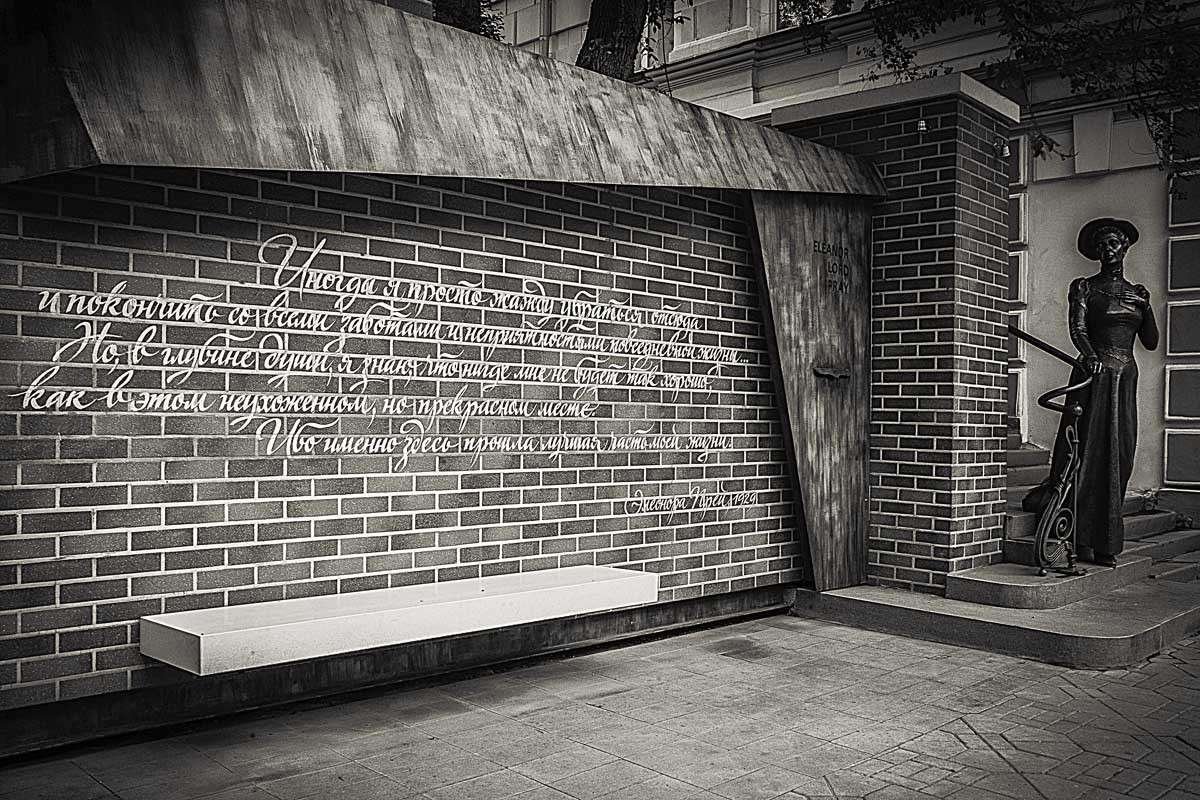 Иногда я просто жажду убраться отсюда
и покончить со всеми заботами и неприятностями повседневной жизни...
Но, в глубине души, я знаю, что нигде мне не будет так хорошо,
как в этом неухоженном, но прекрасном месте.
Ибо именно здесь прошла лучшая часть моей жизни.
Элеонора Прей, 1929
ELEANOR
LORD
PRAY